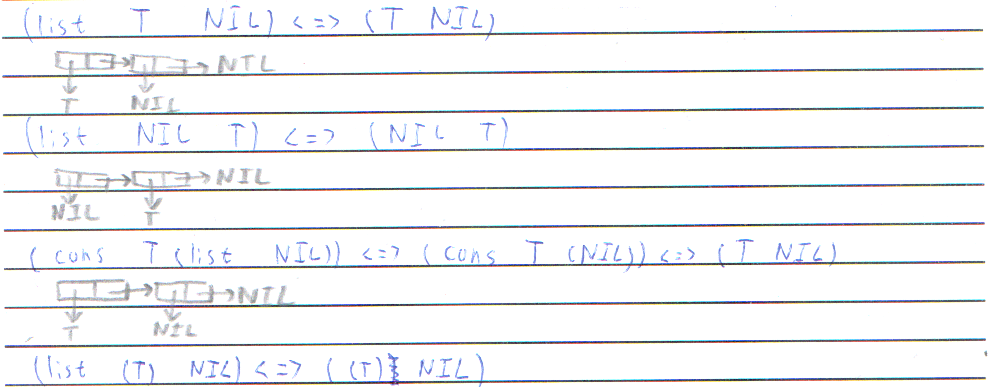 (list T NIL) <=> (T NIL)
→ → NIL
T NIL
(list NIL T) <=> (NIL T)
→ → NIL
NIL T
(cons T (list NIL)) <=> (cons T (NIL)) <=> (T NIL)
→ → NIL
T NIL
(list (T) NIL) <=> ((T) NIL)